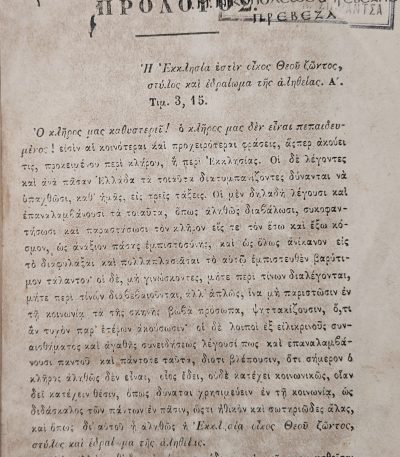 ΠΡΟΛΟΓΟΣ
ΠΡΕΒΕΖΑ
Ἡ Ἐκκλησία ἐστὶν οἶκος Θεοῦ ζῶντος,
στύλος καὶ ἑδραίωμα τῆς ἀληθείας. Α΄.
Τιμ. 3, 15.
Ὁ κλῆρος μας καθυστερεῖ! ὁ κλῆρος μας δὲν εἶναι πεπαιδευ-
μένος! εἰσὶν αἱ κοινότεραι καὶ προχειρότεραι φράσεις, ἅςπερ ἀκούει
τις, προκειμένου περὶ κλήρου, ἢ περὶ Ἐκκλησίας. Οἱ δὲ λέγοντες
καὶ ἀνὰ πᾶσαν Ἑλλάδα τὰ τοιαῦτα διατυμπανίζοντες δύνανται νὰ
ὑπαχθῶσι, καθ' ἡμᾶς, εἰς τρεῖς τάξεις. Οἱ μὲν δηλαδὴ λέγουσι καὶ
ἐπαναλαμβάνουσι τὰ τοιαῦτα, ὅπως ἀληθῶς διαβάλωσι, συκοφαν-
τήσωσι καὶ παραστήσωσι τὸν κλῆρον εἴς τε τὸν ἔσω καὶ ἔξω κό-
σμον, ὡς ἀνάξιον πάσης ἐμπιστοσύνης, καὶ ὡς ὅλως ἀνίκανον εἰς
τὸ διαφυλάξαι καὶ πολλαπλασιᾶσαι τὸ αὐτῷ ἐμπιστευθὲν βαρύτι-
μον τάλαντον· οἱ δὲ, μὴ γινώσκοντες, μήτε περὶ τίνων διαλέγονται,
μήτε περὶ τίνων διαβεβαιοῦνται, ἀλλ' ἁπλῶς, ἵνα μὴ παριστῶσιν ἐν
τῇ κοινωνίᾳ τὰ τῆς σκηνῆς βωβὰ πρόσωπα, ψηττακίζουσιν, ὅ,τι
ἂν τυχὸν παρ' ἑτέρων ἀκούσωσιν· οἱ δὲ λοιποὶ ἐξ εἰλικρινοῦς συν-
αισθήματος καὶ ἀγαθῆς συνειδήσεως λέγουσί πως καὶ ἐπαναλαμβά-
νουσι πανταχοῦ καὶ πάντοτε ταῦτα, διότι βλέπουσιν, ὅτι σήμερον ὁ
κλῆρος ἀληθῶς δὲν εἶναι, οἷος ἔδει, οὐδὲ κατέχει κοινωνικῶς, οἵαν
δεῖ κατέχειν θέσιν, ὅπως δύναται χρησιμεύειν ἐν τῇ κοινωνίᾳ, ὡς
διδάσκαλος τῶν πάντων ἐν πᾶσιν, ὥστι ἠθικὸν καὶ σωτηριῶδες ἅλας,
καὶ ὅπως δι' αὐτοῦ ἡ ἀληθὴς ᾖ Ἐκκλησία οἶκος Θεοῦ ζῶντος,
στύλος καὶ ἑδραίωμα τῆς ἀληθείας.